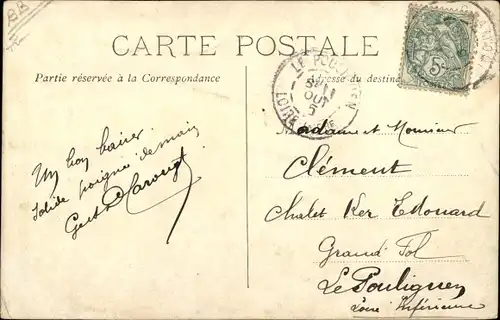 CARTE POSTALE
Partie réservée à la Correspondance
Adresse du destina
LE POU
OUT
5
LOIRE
5
Un bon baiser
Solide poignée de main
Madame et Monsieur
Clément
Chalet Ker Edouard
Grand Fol
Le Pouliguen
Loire Inférieure